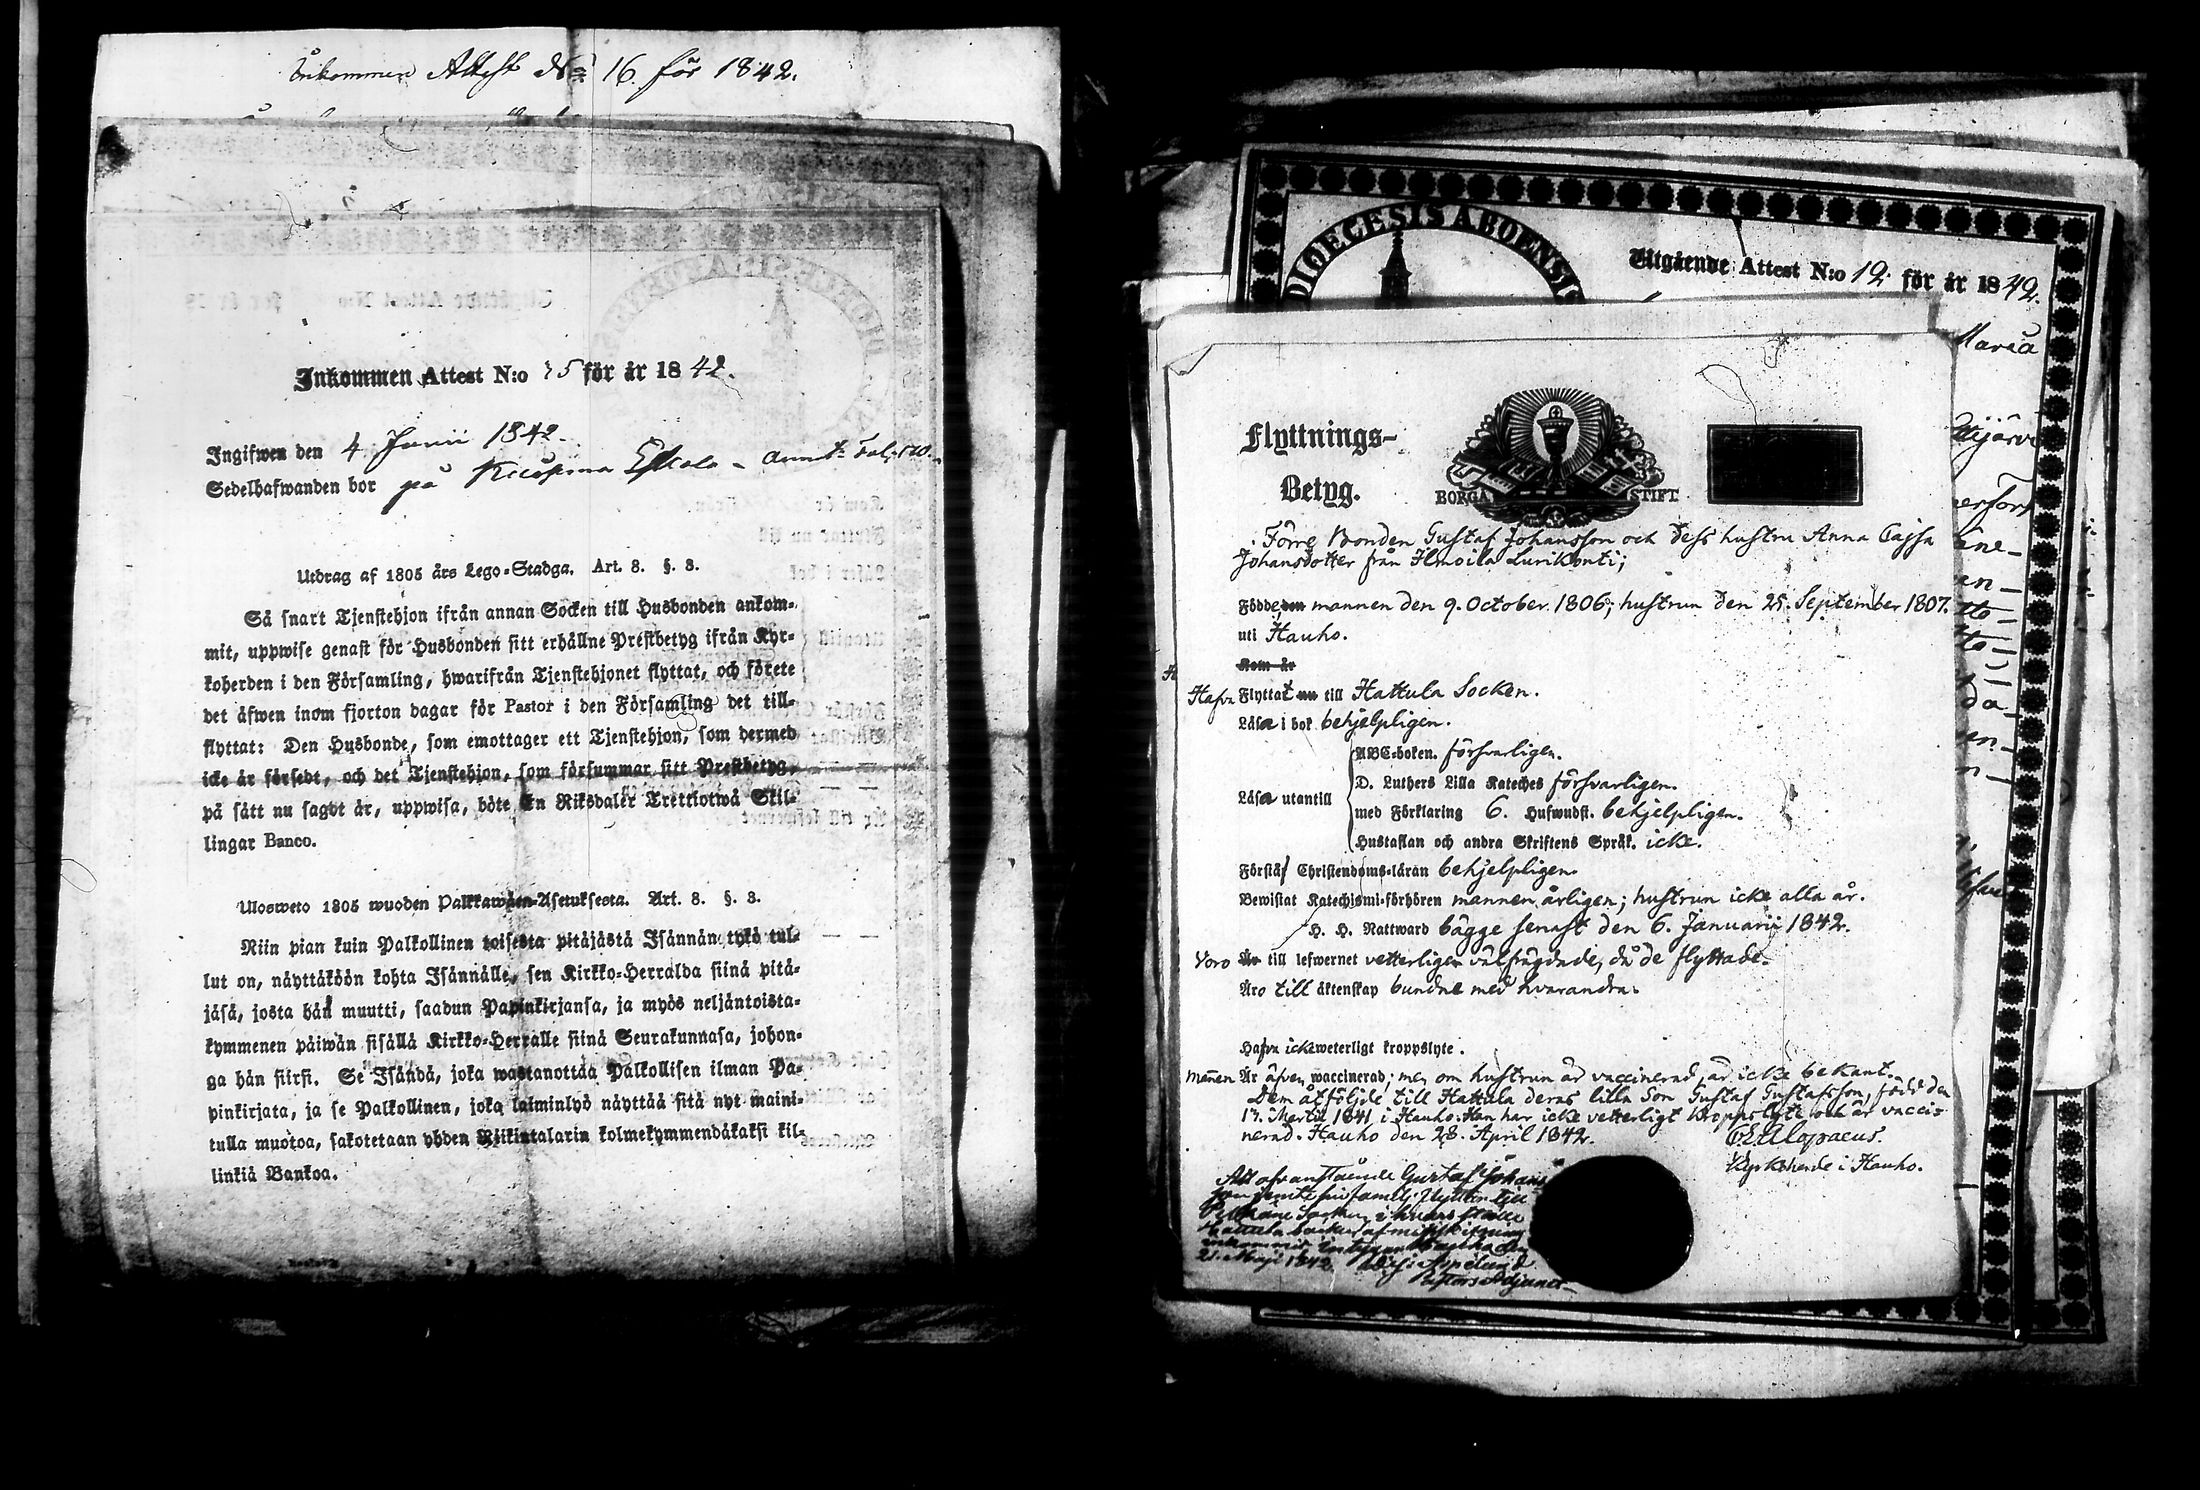 Inkommen Attest No 16. för 1842.
Inkommen Attest N:o 15 för år 1842.
Ingifwen den 4 Junii 1842.
Sedelhafwanden bor på Eskola
Utdrag af 1805 års Lego-Stadga. Art. 8. §. 3.
Så snart Tjenstehjon ifrån annan Socken till Husbonden ankom-
mit, uppwise genast för Husbonden sitt erhållne Prestbetyg ifrån Kyr-
koherden i den Församling, hwarifrån Tjenstehjonet flyttat, och förete
det äfwen inom fjorton dagar för Pastor i den Församling det till-
flyttat: Den Husbonde, som emottager ett Tjenstehjon, som dermed
icke är försedt, och det Tjenstehjon, som försummar sitt Prestbetyg,
på sätt nu sagdt är, uppwisa, böte En Riksdaler Trettiotwå Skil-
lingar Banco.
Ulosweto 1805 wuoden Palkkawäen-Asetuksesta. Art. 8. §. 3.
Niin pian kuin Palkollinen toisesta pitäjästä Isännän tykö tul-
lut on, näyttäköön kohta Isännälle, sen Kirkko-Herralda siinä pitä-
jäsä, josta hän muutti, saadun Papinkirjansa, ja myös neljäntoista-
kymmenen päiwän sisällä Kirkko-Herralle siinä Seurakunnasa, johon-
ga hän siirsi. Se Isändä, joka wastanottaa Palkollisen ilman Pa-
pinkirjata, ja se Palkollinen, joka laiminlyö näyttää sitä nyt maini-
tulla muotoa, sakotetaan yhden Riikintalarin kolmekymmendäkaksi kil-
linkiä Bankoa.
DIOECESIS ABOENSI
Utgående Attest N:o 12 för år 1842.
Maria
Flyttnings-
Betyg.
BORGÅ STIFT.
Förre Bonden Gustaf Johansson och dess hustru Anna Cajsa
Johansdotter från Ilmoila Lurikonti;
Födde, den mannen den 9. October. 1806; hustrun den 25. September 1807.
uti Hauho.
Kom år
Hafva Flyttat nu till Hattula Socken.
Läsa i bok behjelpligen.
ABC-boken. försvarligen.
D. Luthers Lilla Kateches försvarligen.
Läsa utantill
med Förklaring 6. Hufwudst. behjelpligen.
Hustaflan och andra Skriftens Språk. icke.
Förstå Christendoms-läran behjelpligen.
Bewistat Katechismi-förhören mannen årligen; hustrun icke alla år.
H. H. Nattward bägge senast den 6. Januarii 1842.
Voro Är till lefwernet vetterligen välfrägdade, då de flyttade.
Äro till äktenskap bundne med hvarandra.
Hafva icke weterligt kroppslyte.
mannen Är äfven waccinerad; men om hustrun är vaccinerad, är icke bekant.
Dem åtföljde till Hattula deras lilla Son Gustaf Gustafsson, född den
17. Martii 1841 i Hauho. Han har icke vetterligt kroppslyte och är vacci-
nerad. Hauho den 28. April 1842.
Alopaeus.
Kyrkoherde i Hauho.
Att ofvanstående Gustaf Johans-
son jemte sin familj flyttar till
Socken, i hvars ställe
Hattula
21 Maji 1842.
Pastors Adjunct